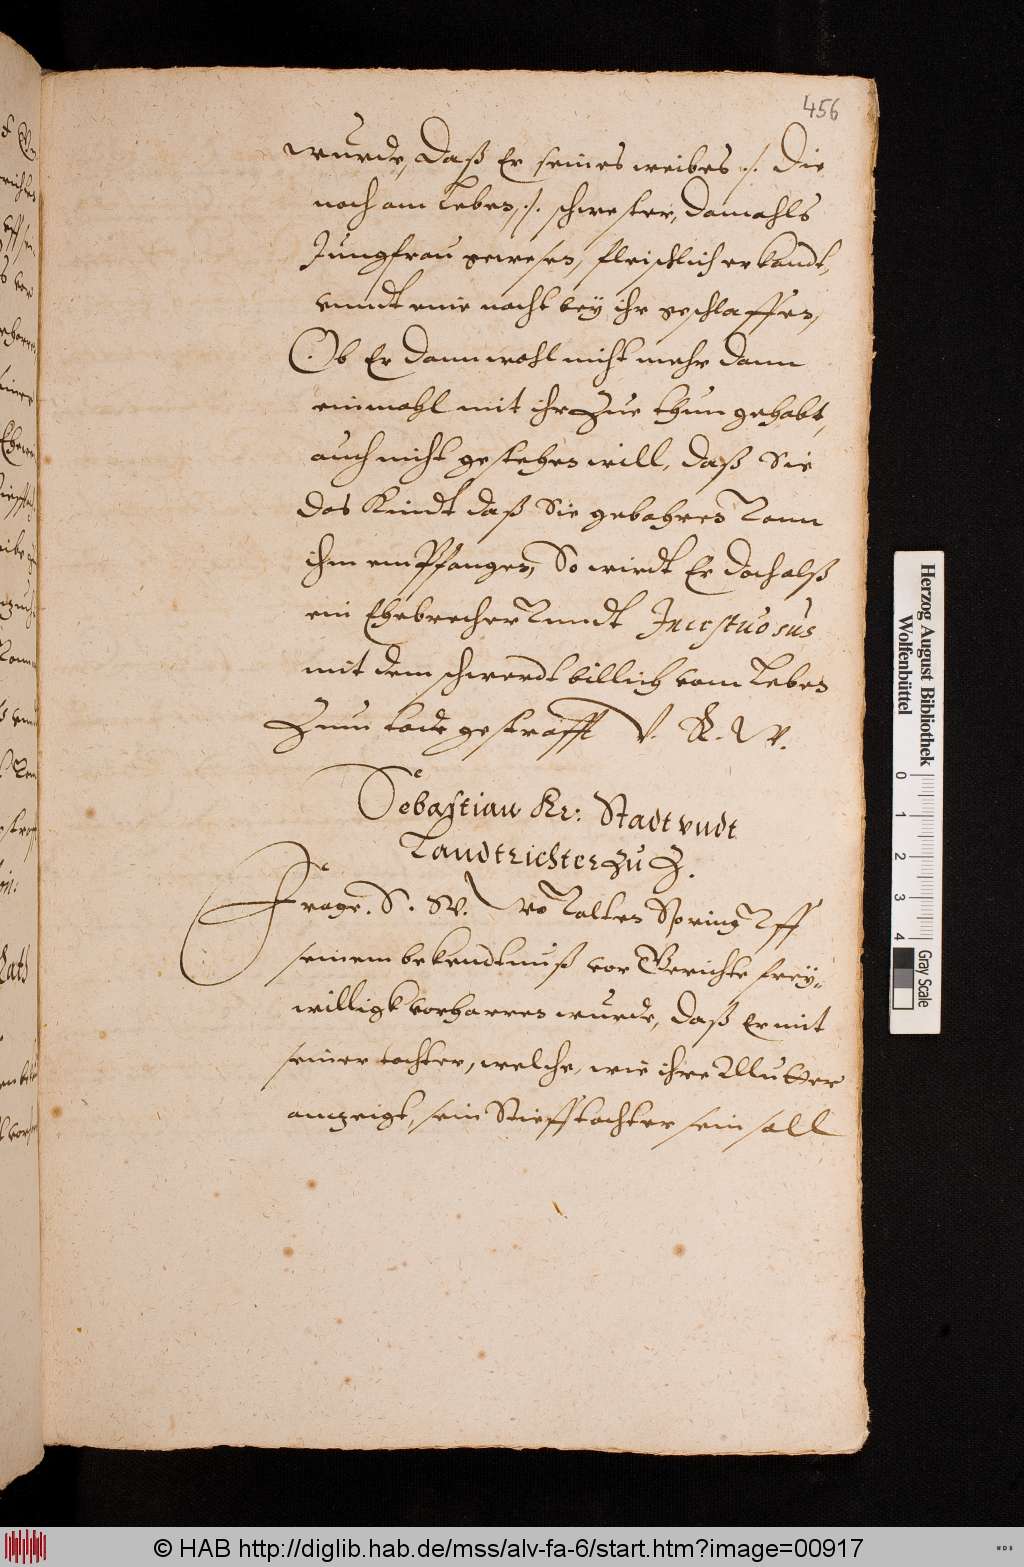 456
wurde, Daß Er seines weibes ./. Die
noch am Leben, ./. schwester, damahls
Jungfrau gewesen, fleischlich erkandt,
vnndt eine nacht bey ihr geschlaffen,
Ob Er dann wohl nicht mehr dann
einmahl mit ihr Zue thun gehabt,
auch nicht gestehen will, daß Sie
das Kindt daß Sie gebohren Vonn
ihm empfangen, So wirdt Er doch alß
ein Ehebrecher Vnndt Incestuosus
mit dem schwerdt billich vom Leben
Zum tode gestrafft V. R. W.
Sebastian Kr: Stadt vndt
Landtrichter zu Z.
Frage. S. W. Valten Spring Vff
seinem bekendtnuß vor Gerichte frey-
willigk vorharren wurde, Daß Er mit
seiner tochter, welche, wie ihre Mutter
anzeigt, sein Stiefftochter sein soll
Herzog August Bibliothek
Wolfenbüttel
0 1 2 3 4
Gray Scale
© HAB http://diglib.hab.de/mss/alv-fa-6/start.htm?image=00917